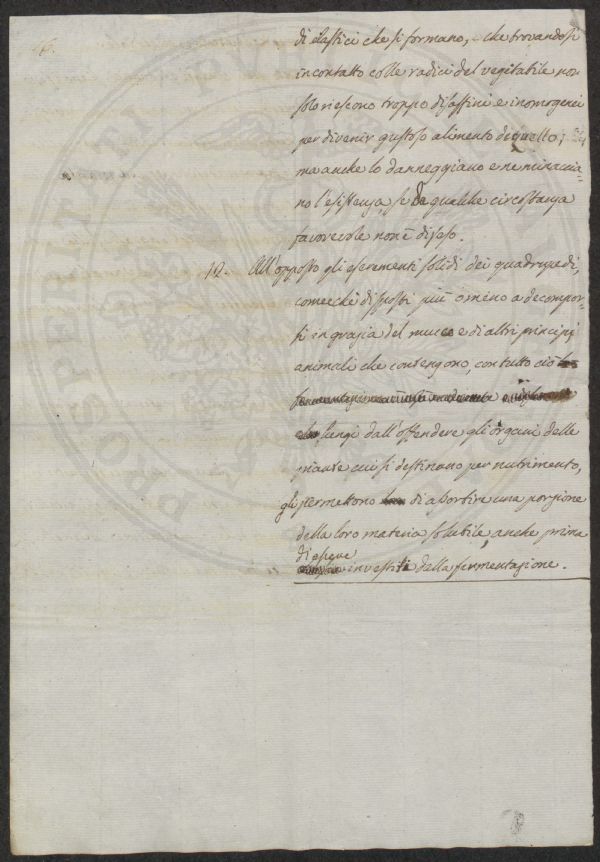 di elastici che si formano, che trovandosi
in contatto colle radici del vegitabile non
solo riescono troppo disaffini e inomogenei
per divenir gustoso alimento di quello;
ma anche lo danneggiano e ne minaccia-
no l'esistenza, se da qualche circostanza
favorevole non è difeso.
12. All'opposto gli escrementi solidi dei quadrupedi,
comecchè disposti più o meno a decompor-
si in grazia del mucco e di altri principj
animali che contengono, con tutto ciò
lungi dall'offendere gli organi delle
piante cui si destinano per nutrimento,
gli permettono di assortire una porzione
della loro materia solubile, anche prima
di essere
investiti dalla fermentazione.
PROSPERITATI PVBLICAE